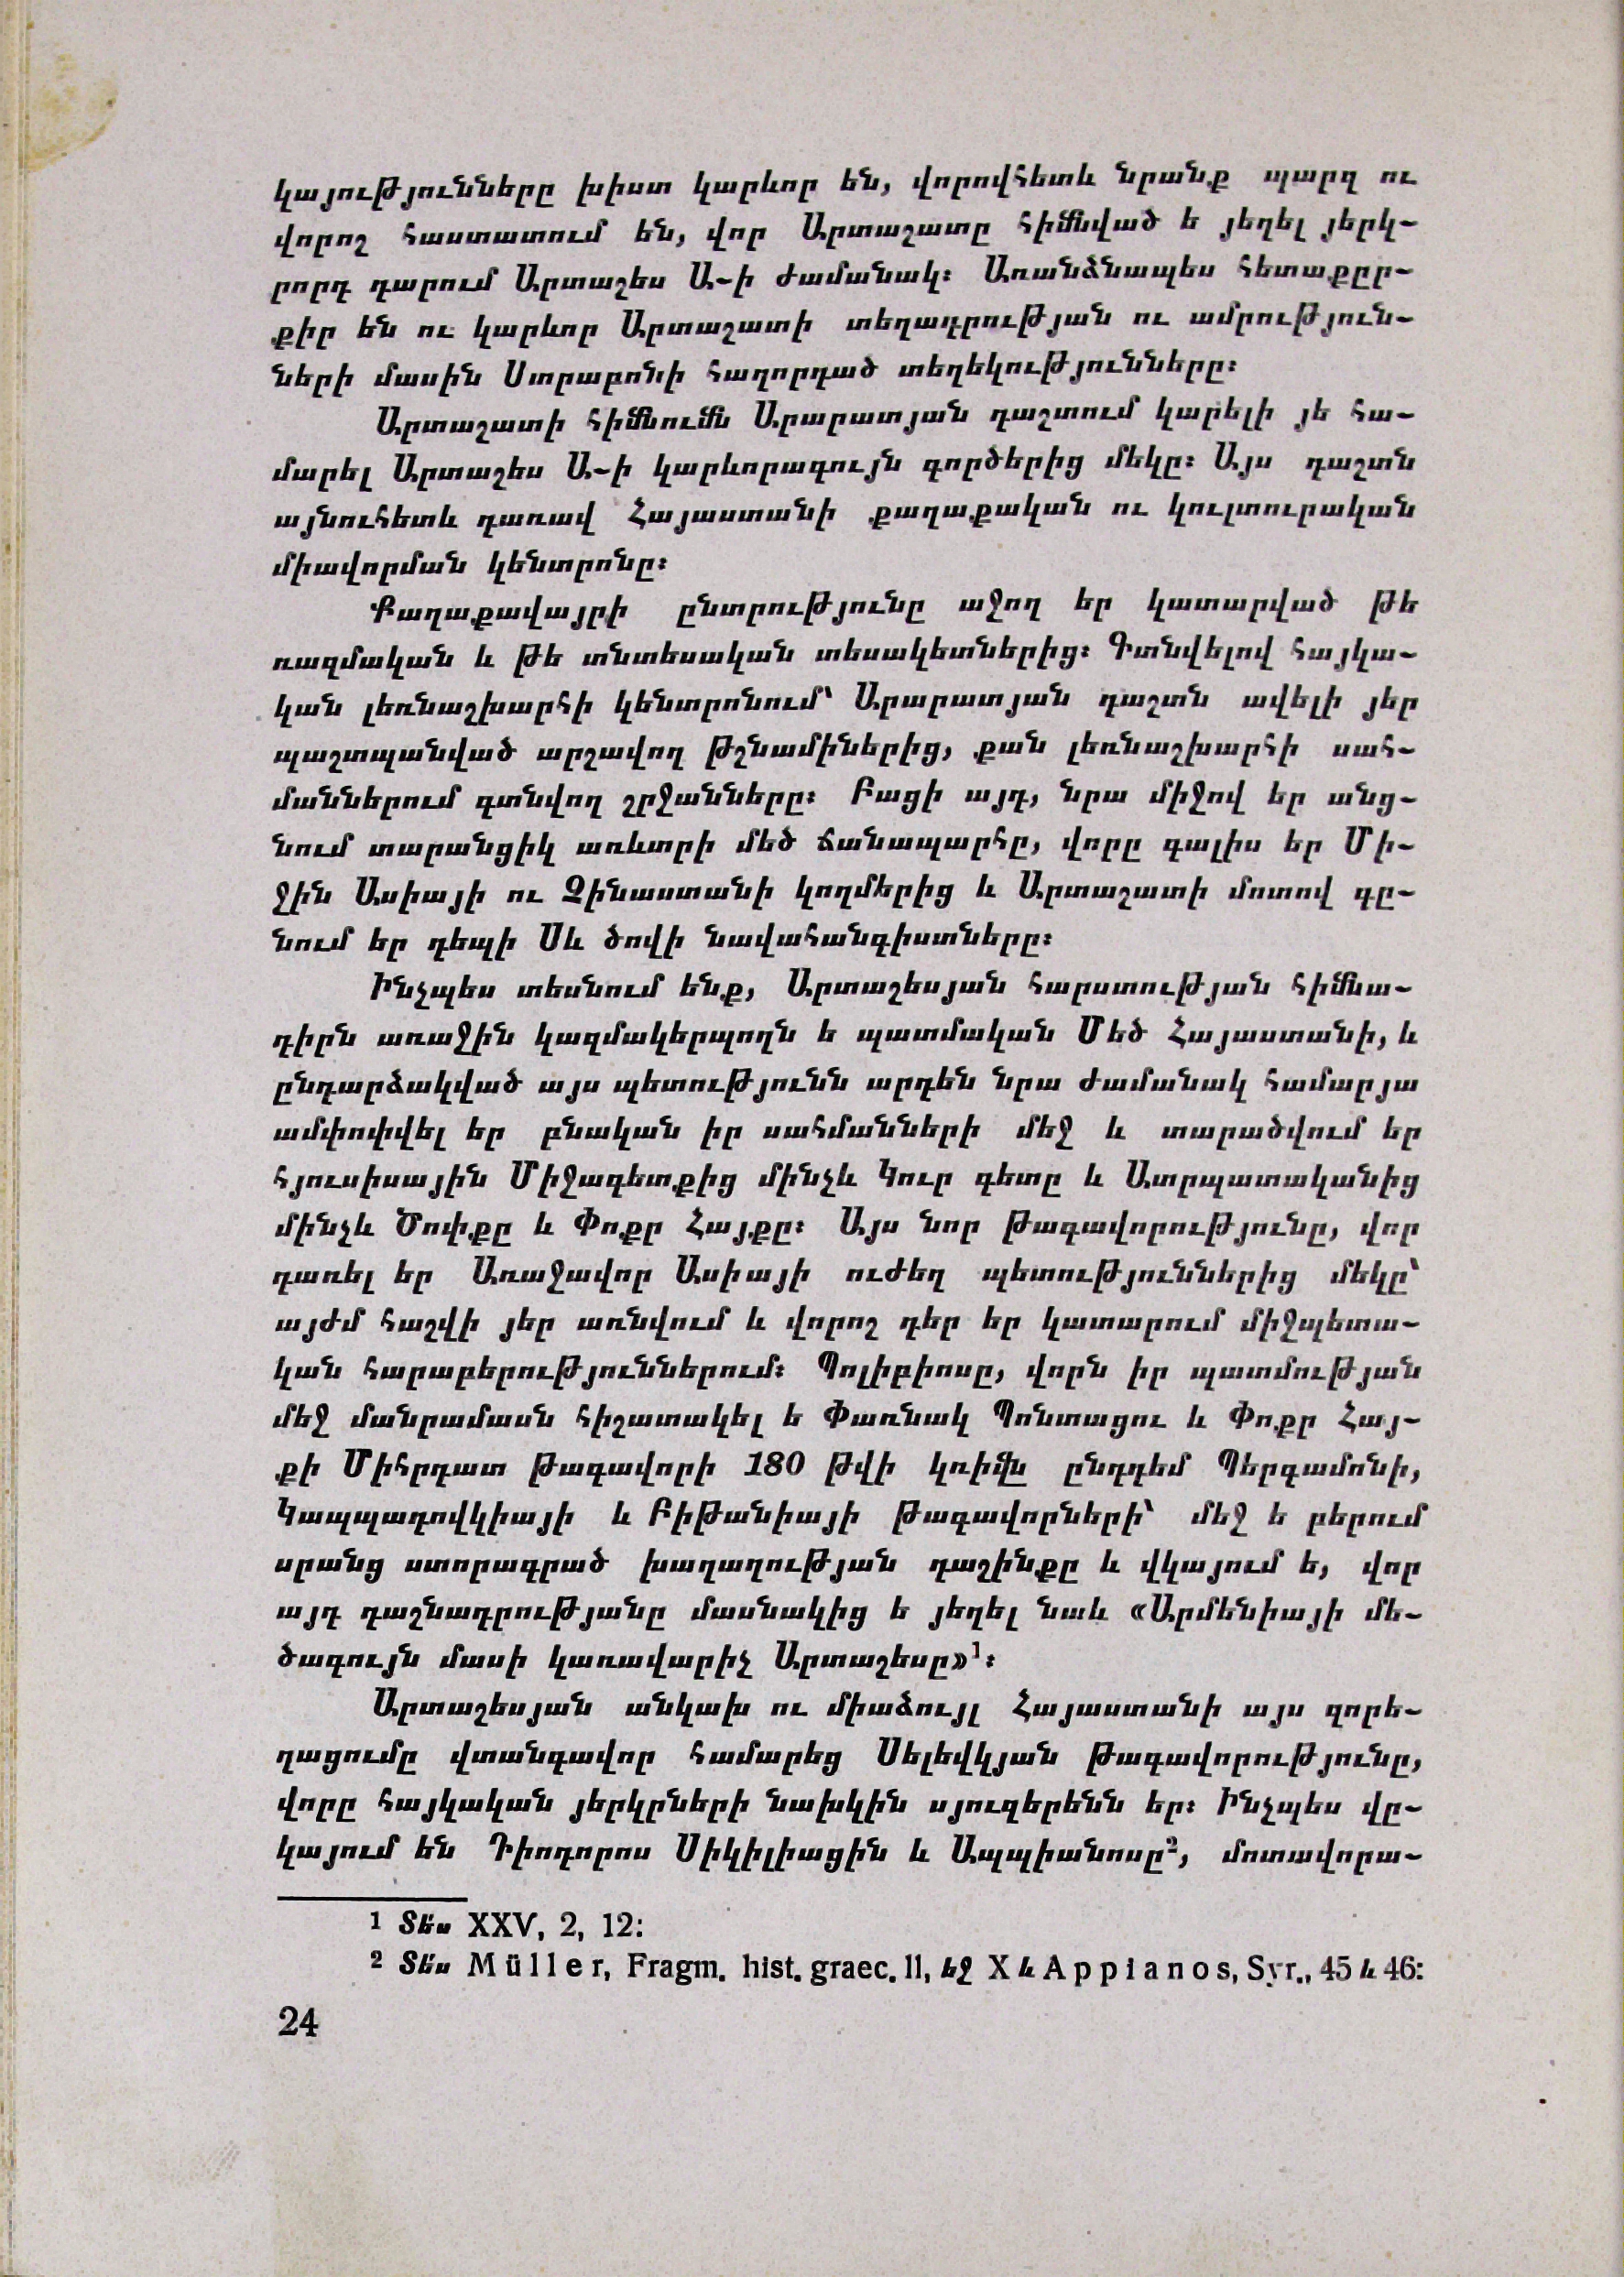 կայությունները խիստ կարևոր են, վորովհետև նրանք պարզ ու
վորոշ հաստատում են, վոր Արտաշատը հիմնված ե յեղել յերկ-
րորդ դարում Արտաշես Ա-ի ժամանակ։ Առանձնապես հետաքըր-
քիր են ու կարևոր Արտաշատի տեղադրության ու ամրություն-
ների մասին Ստրաբոնի հաղորդած տեղեկությունները։
Արտաշատի հիմնումն Արարատյան դաշտում կարելի յե հա-
մարել Արտաշես Ա-ի կարևորագույն գործերից մեկը։ Այս դաշտն
այնուհետև դառավ Հայաստանի քաղաքական ու կուլտուրական
միավորման կենտրոնը։
Քաղաքավայրի ընտրությունը աջող եր կատարված թե
ռազմական և թե տնտեսական տեսակետներից։ Գտնվելով հայկա-
կան լեռնաշխարհի կենտրոնում՝ Արարատյան դաշտն ավելի յեր
պաշտպանված արշավող թշնամիներից, քան լեռնաշխարհի սահ-
մաններում գտնվող շրջանները։ Բացի այդ, նրա միջով եր անց-
նում տարանցիկ առևտրի մեծ ճանապարհը, վորը գալիս եր Մի-
ջին Ասիայի ու Չինաստանի կողմերից և Արտաշատի մոտով գը-
նում եր դեպի Սև ծովի նավահանգիստները։
Ինչպես տեսնում ենք, Արտաշեսյան հարստության հիմնա-
դիրն առաջին կազմակերպողն ե պատմական Մեծ Հայաստանի, և
ընդարձակված այս պետությունն արդեն նրա ժամանակ համարյա
ամփոփվել եր բնական իր սահմանների մեջ և տարածվում եր
հյուսիսային Միջագետքից մինչև Կուր գետը և Ատրպատականից
մինչև Ծոփքը և Փոքր Հայքը։ Այս նոր թագավորությունը, վոր
դառել եր Առաջավոր Ասիայի ուժեղ պետություններից մեկը՝
այժմ հաշվի յեր առնվում և վորոշ դեր եր կատարում միջպետա-
կան հարաբերություններում։ Պոլիբիոսը, վորն իր պատմության
մեջ մանրամասն հիշատակել ե Փառնակ Պոնտացու և Փոքր Հայ-
քի Միհրդատ թագավորի 180 թվի կռիվն ընդդեմ Պերգամոնի,
Կապպադովկիայի և Բիթանիայի թագավորների՝ մեջ ե բերում
սրանց ստորագրած խաղաղության դաշինքը և վկայում ե, վոր
այդ դաշնադրությանը մասնակից ե յեղել նաև «Արմենիայի մե-
ծագույն մասի կառավարիչ Արտաշեսը»¹։
Արտաշեսյան անկախ ու միաձույլ Հայաստանի այս զորե-
ղացումը վտանգավոր համարեց Սելևկյան թագավորությունը,
վորը հայկական յերկրների նախկին սյուզերենն եր։ Ինչպես վը-
կայում են Դիոդորոս Սիկիլիացին և Ապպիանոսը², մոտավորա-
1 Տե՛ս XXV, 2, 12:
2 Տե՛ս Müller, Fragm. hist. graec. II, եջ X և Appianos, Syr., 45 և 46:
24